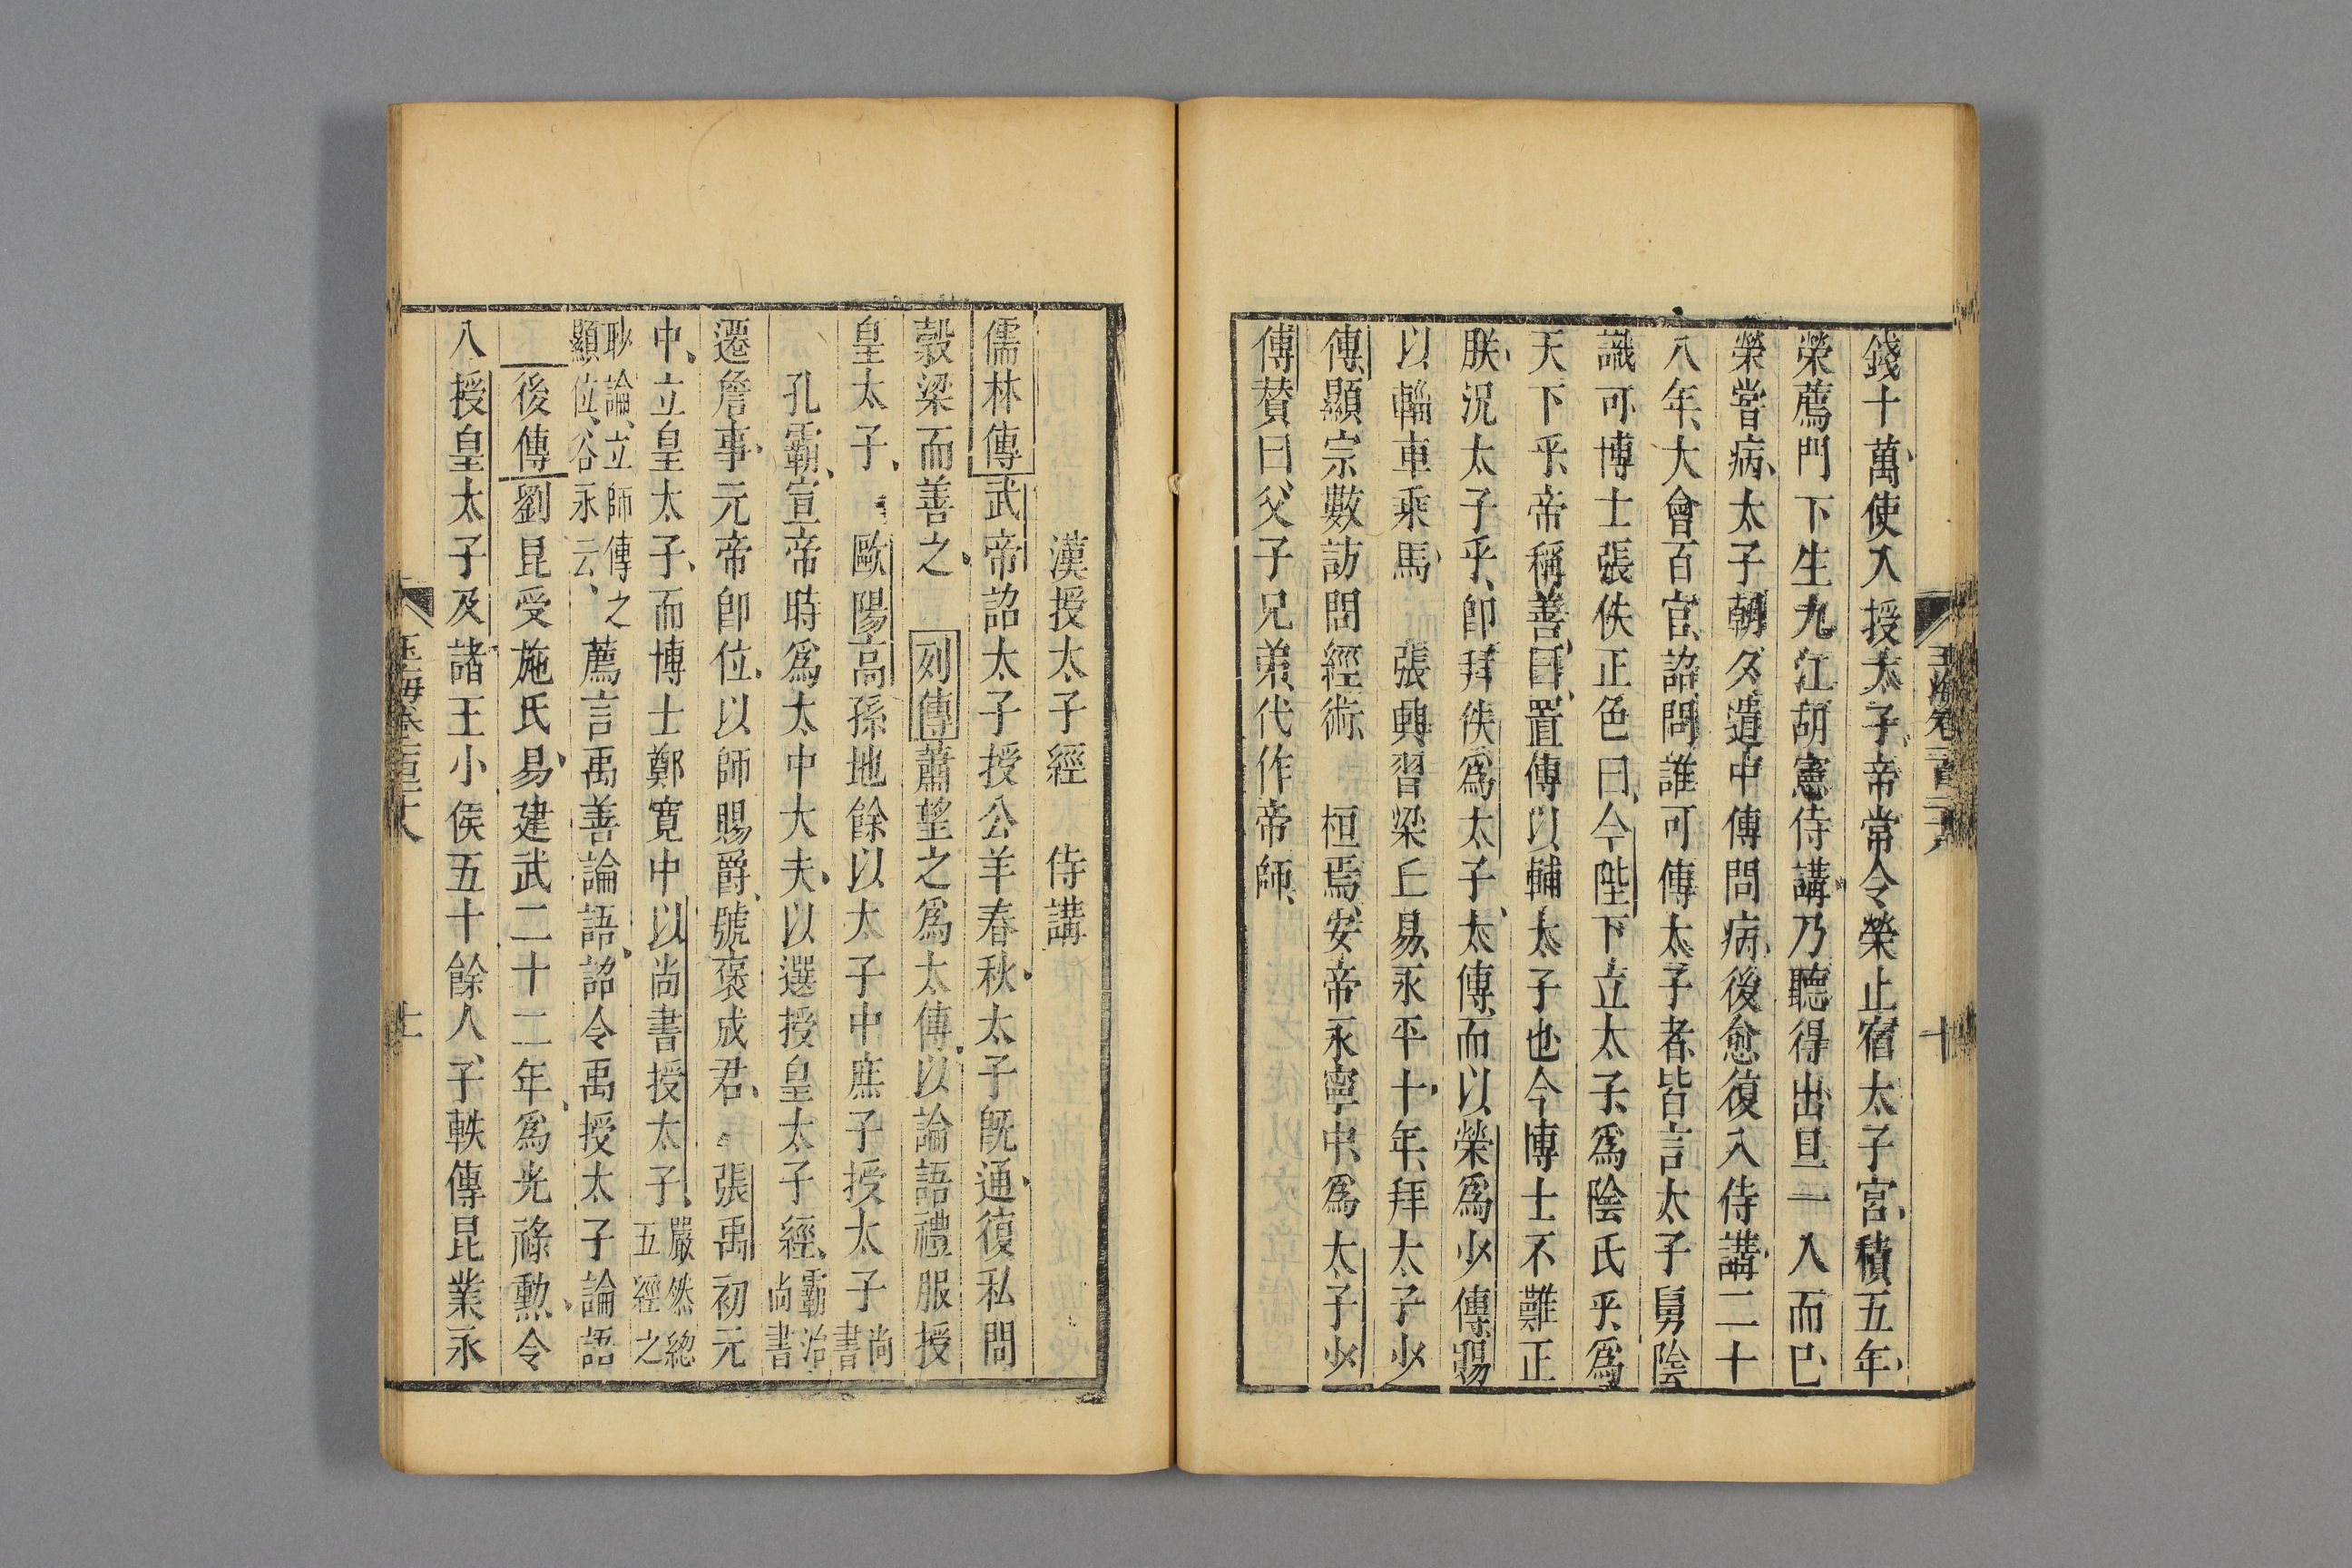 錢十萬使入授太子帝常令榮止宿太子宮積五年
榮薦門下生九江胡憲侍講乃聽得出旦一入而已
榮嘗病太子朝夕遣中傅問病後愈復入侍講二十
八年大會百官詔問誰可傅太子者皆言太子舅陰
識可博士張佚正色曰今陛下立太子爲陰氏乎爲
天下乎帝稱善曰置傅以輔太子也今博士不難正
朕況太子乎卽拜佚爲太子太傅而以榮爲少傅賜
以輜車乘馬 張興習梁丘易永平十年拜太子少
傅顯宗數訪問經術 桓焉安帝永寧中爲太子少
傅贊曰父子兄弟代作帝師
十
漢授太子經 侍講
儒林傳武帝詔太子授公羊春秋太子旣通復私問
穀梁而善之 列傳蕭望之爲太傅以論語禮服授
皇太子 歐陽高孫地餘以太子中庶子授太子尚書
孔霸宣帝時爲太中大夫以選授皇太子經霸治尚書
遷詹事元帝卽位以師賜爵號褒成君 張禹初元
中立皇太子而博士鄭寬中以尚書授太子嚴然總五經之
眇論立師傅之顯位谷永云薦言禹善論語詔令禹授太子論語
後傳劉昆受施氏易建武二十二年爲光祿勲令
入授皇太子及諸王小侯五十餘人子軼傳昆業永
玉海卷一百二十八 十一